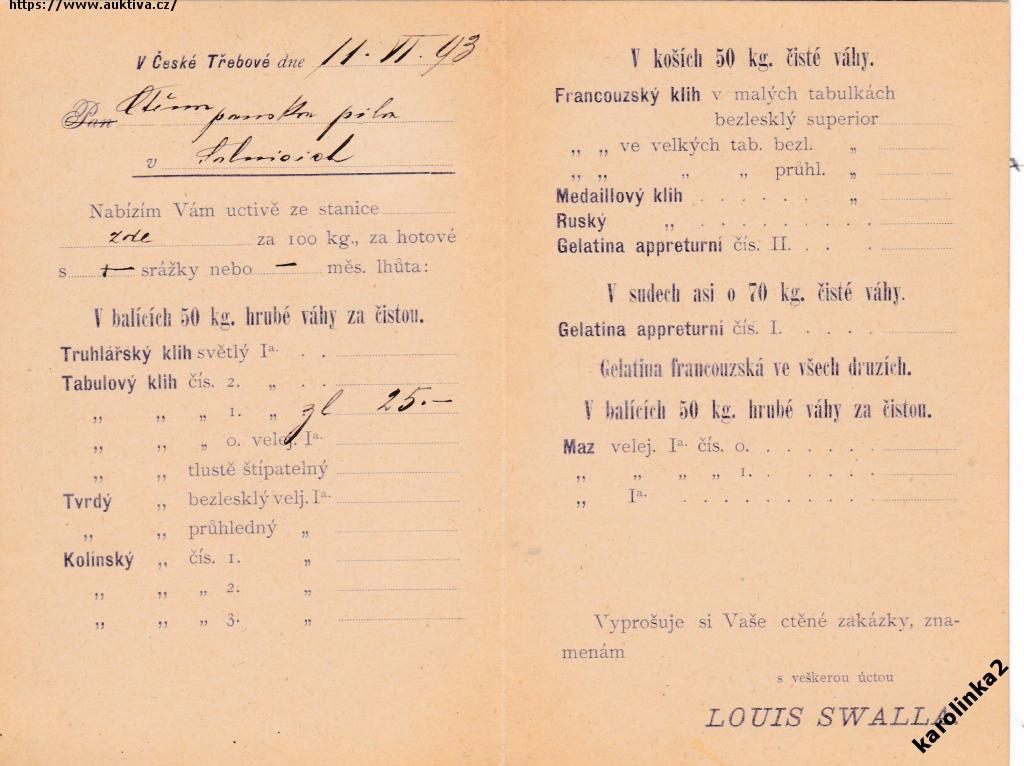 https://www.auktiva.cz/
V České Třebové dne 11. VI. 93
Pan
panská pila
v
Nabízím Vám uctivě ze stanice
zde za 100 kg., za hotové
s srážky nebo — měs. lhůta:
V balících 50 kg. hrubé váhy za čistou.
Truhlářský klih světlý Ia. . .
Tabulový klih čís. 2. „ . .
„ „ „ 1. „ zl 25.—
„ „ „ 0. velej. Ia.
„ „ tlustě štípatelný
Tvrdý „ bezlesklý velj. Ia.
„ „ průhledný „
Kolínský „ čís. 1. „
„ „ „ 2. „
„ „ „ 3. „
V koších 50 kg. čisté váhy.
Francouzský klih v malých tabulkách
bezlesklý superior
„ „ ve velkých tab. bezl. „
„ „ „ „ průhl. „
Medaillový klih . . . . . . „
Ruský „ . . . . . . . .
Gelatina appreturní čís. II. . . . .
V sudech asi o 70 kg. čisté váhy.
Gelatina appreturní čís. I. . . . .
Gelatina francouzská ve všech druzích.
V balících 50 kg. hrubé váhy za čistou.
Maz velej. Ia. čís. 0. . . . . .
„ „ „ „ 1. . . . . .
„ Ia. . . . . . . . . .
Vyprošuje si Vaše ctěné zakázky, zna-
menám
s veškerou úctou
LOUIS SWALLA
karolinka2